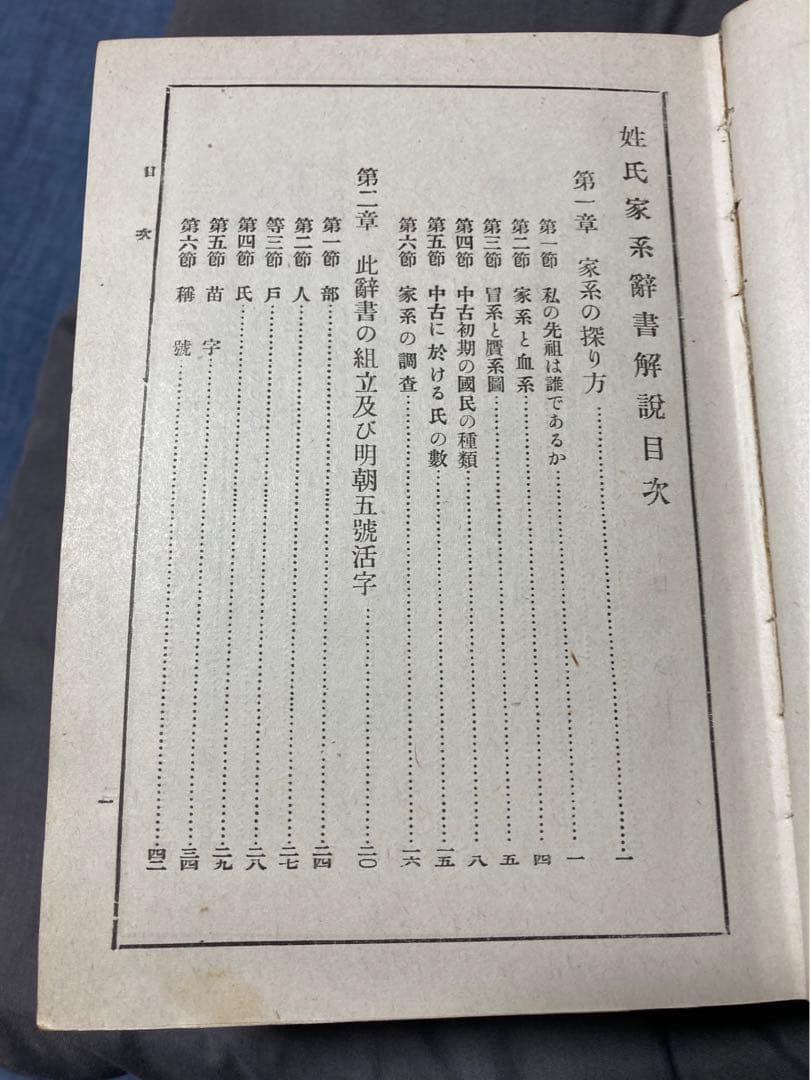 姓氏家系辭書解說目次
第一章 家系の探り方……一
第一節 私の先祖は誰であるか……一
第二節 家系と血系……四
第三節 冒系と贋系圖……五
第四節 中古初期の國民の種類……八
第五節 中古に於ける氏の數……一五
第六節 家系の調査……一六
第二章 此辭書の組立及び明朝五號活字……二〇
第一節 部……二四
第二節 人……二七
等三節 戶……二八
第四節 氏……二九
第五節 苗字……三四
第六節 稱號……四二
目次
一